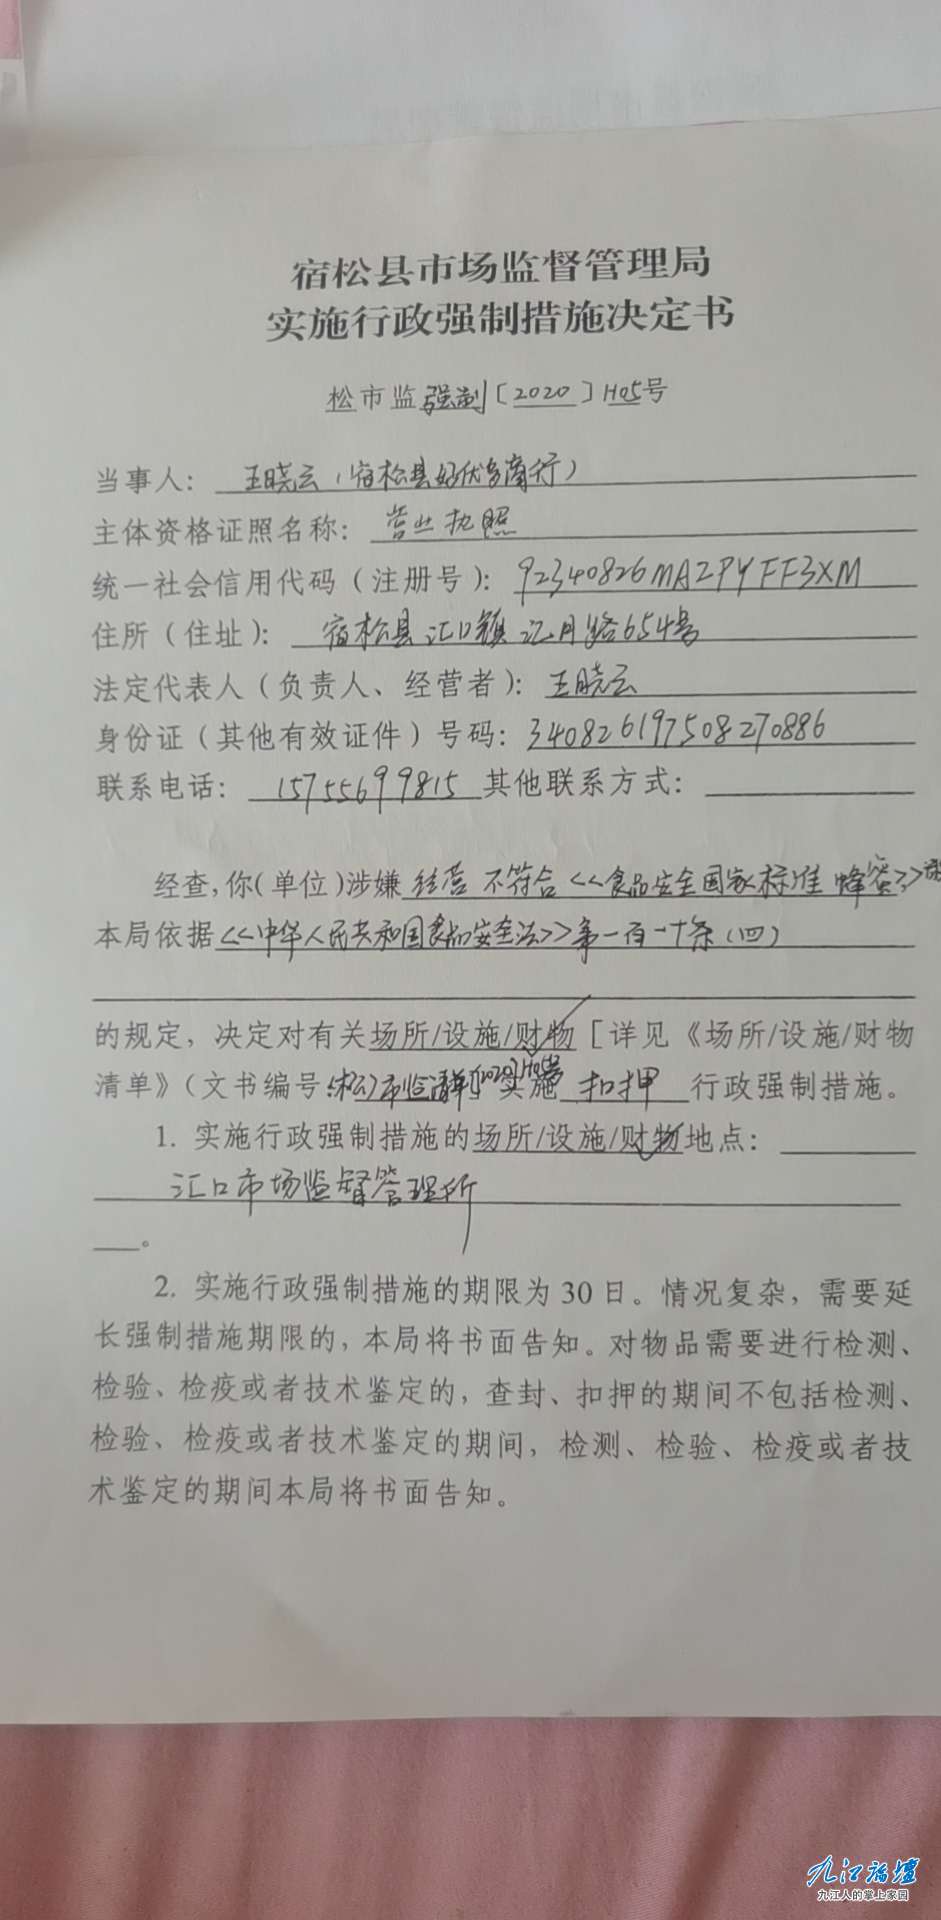 宿松县市场监督管理局
实施行政强制措施决定书
松市监强制〔2020〕H05号
当事人：王晓云（宿松县好优多商行）
主体资格证照名称：营业执照
统一社会信用代码（注册号）：92340826MA2PYFF3XM
住所（住址）：宿松县汇口镇汇月路654号
法定代表人（负责人、经营者）：王晓云
身份证（其他有效证件）号码：340826197508270886
联系电话：15755699815 其他联系方式：
经查，你（单位）涉嫌经营不符合<<食品安全国家标准 蜂蜜>>
本局依据<<中华人民共和国食品安全法>>第一百一十条（四）
的规定，决定对有关场所/设施/财物［详见《场所/设施/财物
清单》（文书编号：（松）市监清单[2020]H05号 实施 扣押 行政强制措施。
1. 实施行政强制措施的场所/设施/财物地点：
汇口市场监督管理所
。
2. 实施行政强制措施的期限为30日。情况复杂，需要延
长强制措施期限的，本局将书面告知。对物品需要进行检测、
检验、检疫或者技术鉴定的，查封、扣押的期间不包括检测、
检验、检疫或者技术鉴定的期间，检测、检验、检疫或者技
术鉴定的期间本局将书面告知。
九江论坛
九江人的掌上家园